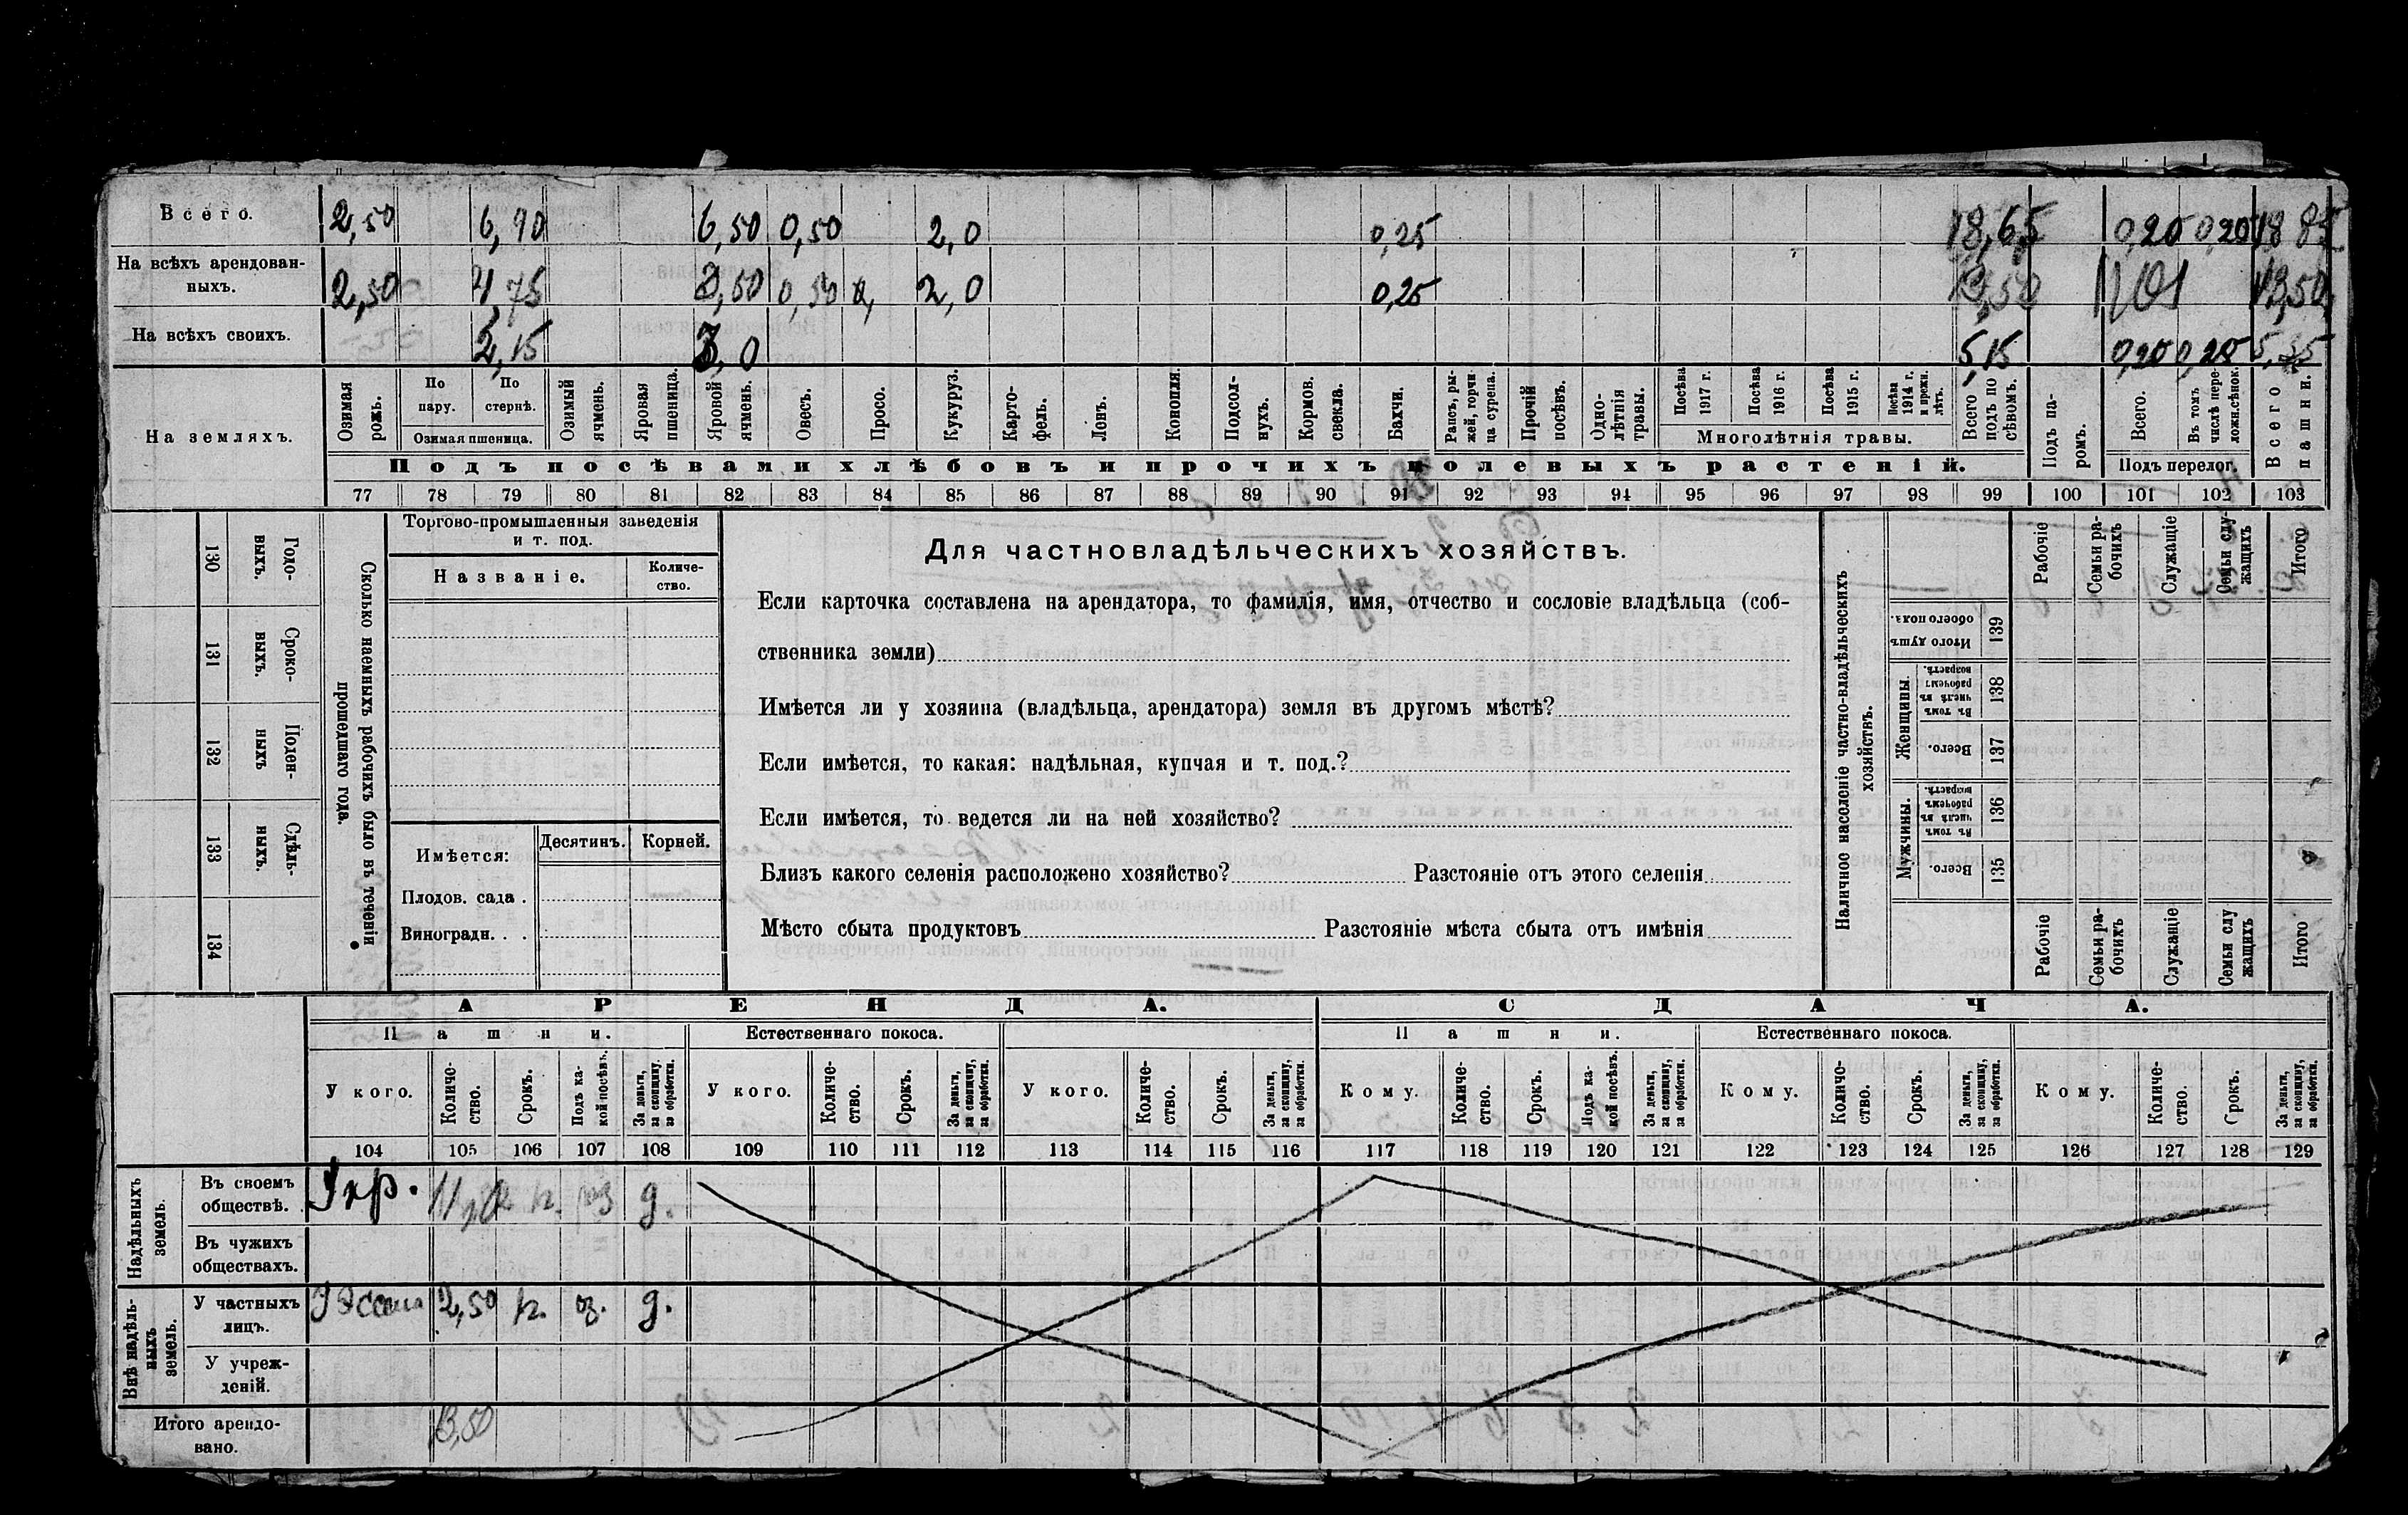 Всего. 2,50 6,90 6,50 0,50 2,0 0,25 18,65 0,20 0,20 18 85
На всѣхъ арендован-
ныхъ. 2,50 4,75 3,50 0,50 2,0 0,25 13,50 13,50
На всѣхъ своихъ. 2,15 3,0 5,15 0,20 0,20 5,35
На земляхъ.
Озимая рожь.
По пару.
По стернѣ.
Озимая пшеница.
Озимый ячмень.
Яровая пшеница.
Яровой ячмень.
Овесъ.
Просо.
Кукуруз.
Карто-
фель.
Ленъ.
Конопля.
Подсол-
нухъ.
Кормов.
свекла.
Бахчи.
Рапсъ, ры-
жей, горчи-
ца сурепа.
Прочій
посѣвъ.
Одно-
лѣтнія
травы.
Посѣва
1917 г.
Посѣва
1916 г.
Посѣва
1915 г.
Посѣва
1914 г.
и прежн.
лѣтъ.
Многолѣтнія травы.
Всего
подъ по
сѣвомъ.
Подъ па-
ромъ.
Всего.
Въ томъ
числѣ пере-
ложн.сѣнок.
Подъ перелог.
Всего
пашни.
Подъ посѣвами хлѣбовъ и прочихъ полевыхъ растеній.
77 78 79 80 81 82 83 84 85 86 87 88 89 90 91 92 93 94 95 96 97 98 99 100 101 102 103
130 Годо-
выхъ.
131 Сроко-
выхъ.
132 Поден-
ныхъ
133 Сдѣль-
ныхъ.
134
Сколько наемныхъ рабочихъ было въ теченіи
прошедшаго года.
Торгово-промышленныя заведенія
и т. под.
Названіе.
Количе-
ство.
Имѣется:
Десятинъ. Корней.
Плодов. сада .
Виноградн. . .
Для частновладѣльческихъ хозяйствъ.
Если карточка составлена на арендатора, то фамилія, имя, отчество и сословіе владѣльца (соб-
ственника земли)
Имѣется ли у хозяина (владѣльца, арендатора) земля въ другомъ мѣстѣ?
Если имѣется, то какая: надѣльная, купчая и т. под.?
Если имѣется, то ведется ли на ней хозяйство?
Близъ какого селенія расположено хозяйство? Разстояніе отъ этого селенія
Мѣсто сбыта продуктовъ Разстояніе мѣста сбыта отъ имѣнія
Наличное населеніе частно-владѣльческихъ
хозяйствъ.
Рабочіе
Семьи ра-
бочихъ
Служащіе
Семьи слу-
жащихъ
Итого
Итого душъ
обоего пола.
139
Женщины.
Въ томъ
числѣ въ
рабочемъ
возрастѣ.
138
Всего.
137
Мужчины.
Въ томъ
числѣ въ
рабочемъ
возрастѣ.
136
Всего.
135
Рабочіе
Семьи ра-
бочихъ
Служащіе
Семьи слу
жащихъ
Итого
АРЕНДА. СДАЧА.
Пашни. Естественнаго покоса. Пашни. Естественнаго покоса.
У кого.
Количе-
ство.
Срокъ.
Подъ ка-
кой посѣвъ.
За деньги,
за скопщину,
за обработки.
У кого.
Количе-
ство.
Срокъ.
За деньги,
за скопщину,
за обработки.
У кого.
Количе-
ство.
Срокъ.
За деньги,
за скопщину,
за обработки.
Кому.
Количе-
ство.
Срокъ.
Подъ ка-
кой посѣвъ.
За деньги,
за скопщину,
за обработки.
Кому.
Количе-
ство.
Срокъ.
За деньги,
за скопщину,
за обработки.
Кому.
Количе-
ство.
Срокъ.
За деньги,
за скопщину,
за обработки.
104 105 106 107 108 109 110 111 112 113 114 115 116 117 118 119 120 121 122 123 124 125 126 127 128 129
Надѣльныхъ
земель.
Въ своемъ
обществѣ. д.
Въ чужихъ
обществахъ.
Внѣ надѣль-
ныхъ
земель.
У частныхъ
лицъ. 2,50 оз. д.
У учреж-
деній.
Итого арендо-
вано. 13,50